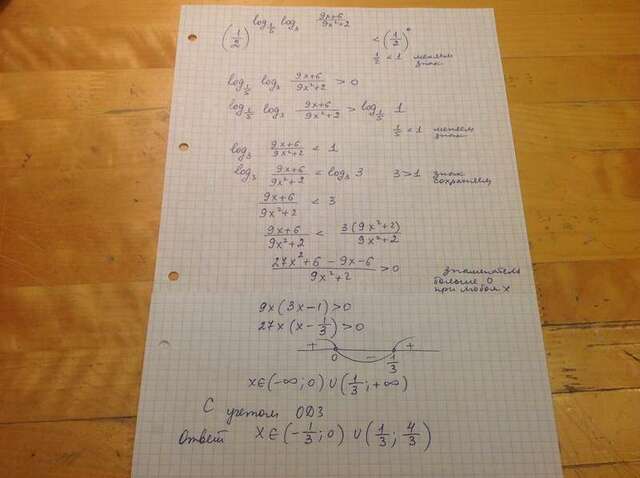 (1/2)^(log_{1/5} log_3 (9x+6)/(9x²+2)) < (1/2)^0
1/5 < 1 меняем знак
log_{1/5} log_3 (9x+6)/(9x²+2) > 0
log_{1/5} log_3 (9x+6)/(9x²+2) > log_{1/5} 1
1/5 < 1 меняем знак
log_3 (9x+6)/(9x²+2) < 1
log_3 (9x+6)/(9x²+2) < log_3 3 3>1 знак сохраняем
(9x+6)/(9x²+2) < 3
(9x+6)/(9x²+2) < 3(9x²+2)/(9x²+2)
(27x²+6-9x-6)/(9x²+2) > 0 знаменатель больше 0 при любом x
9x(3x-1)>0
27x(x-1/3)>0
+ 0 - 1/3 +
x∈(-∞;0)∪(1/3;+∞)
С учетом ОДЗ
Ответ x∈(-1/3;0)∪(1/3;4/3)